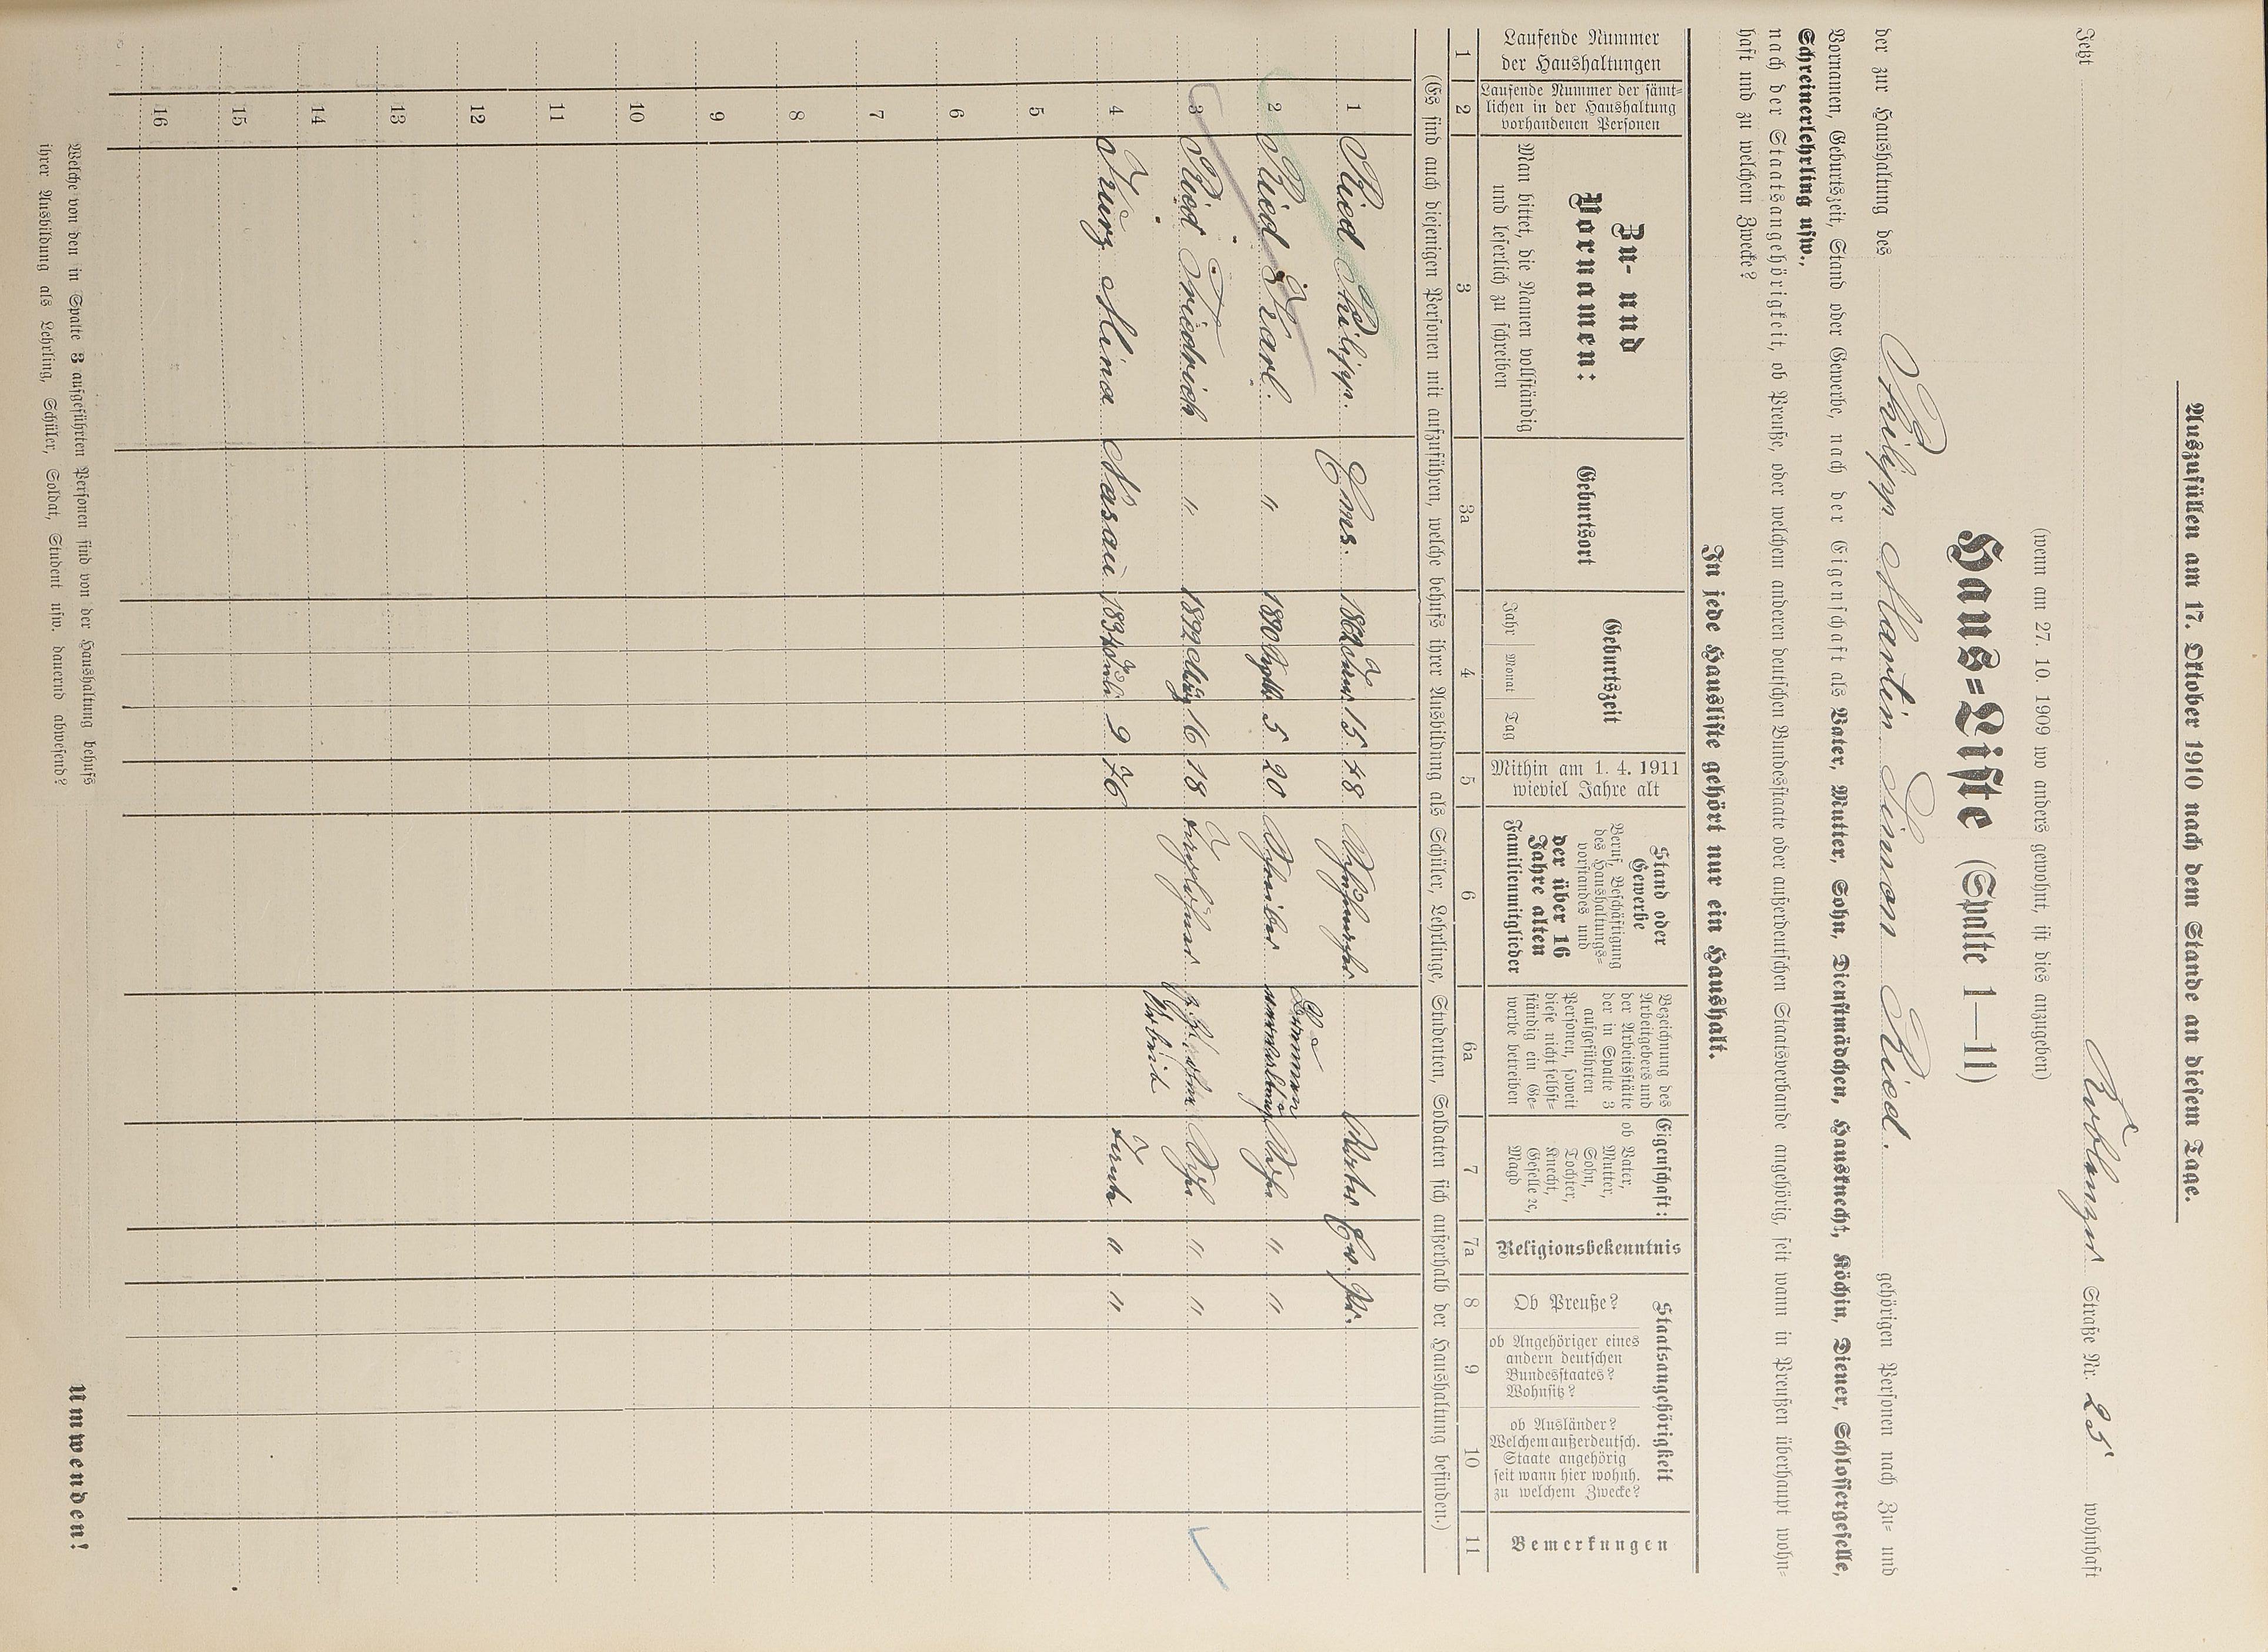 Auszufüllen am 17. Oktober 1910 nach dem Stande an diesem Tage.
Jetzt Koblenzer Straße Nr. 25 wohnhaft
(wenn am 27. 10. 1909 wo anders gewohnt, ist dies anzugeben)
Haus=Liste (Spalte 1—11)
der zur Haushaltung des Philipp Martin Simon Ried. gehörigen Personen nach Zu= und
Vornamen, Geburtszeit, Stand oder Gewerbe, nach der Eigenschaft als Vater, Mutter, Sohn, Dienstmädchen, Hausknecht, Köchin, Diener, Schlossergeselle,
Schreinerlehrling usw.,
nach der Staatsangehörigkeit, ob Preuße, oder welchem anderen deutschen Bundesstaate oder außerdeutschen Staatsverbande angehörig, seit wann in Preußen überhaupt wohn=
haft und zu welchem Zwecke?
In jede Hausliste gehört nur ein Haushalt.
Laufende Nummer
der Haushaltungen
Laufende Nummer der sämt=
lichen in der Haushaltung
vorhandenen Personen
Zu- und
Vornamen:
Man bittet, die Namen vollständig
und leserlich zu schreiben
Geburtsort
Geburtszeit
Jahr Monat Tag
Mithin am 1. 4. 1911
wieviel Jahre alt
Stand oder
Gewerbe
Beruf, Beschäftigung
des Haushaltungs=
vorstandes und
der über 16
Jahre alten
Familienmitglieder
Bezeichnung des
Arbeitgebers und
der Arbeitsstätte
der in Spalte 3
aufgeführten
Personen, soweit
diese nicht selbst=
ständig ein Ge=
werbe betreiben
Eigenschaft:
ob Vater,
Mutter,
Sohn,
Tochter,
Knecht,
Geselle ec,
Magd
Religionsbekenntnis
Staatsangehörigkeit
Ob Preuße?
ob Angehöriger eines
andern deutschen
Bundesstaates?
Wohnsitz?
ob Ausländer?
Welchem außerdeutsch.
Staate angehörig
seit wann hier wohnh.
zu welchem Zwecke?
Bemerkungen
1 2 3 3a 4 5 6 6a 7 7a 8 9 10 11
(Es sind auch diejenigen Personen mit aufzuführen, welche behufs ihrer Ausbildung als Schüler, Lehrlinge, Studenten, Soldaten sich außerhalb der Haushaltung befinden.)
1 Ried Philipp. Ems. 15 48 Vater Ev. Pr.
2 Ried Karl. " 1890 Septb. 5 20 Schreiber Brunnen Sohn " "
verwaltung
3 Ried Friedrich " 1892 Aug 16 18 Tagelöhner z. Z. ohne Sohn " "
Arbeit
4 Kurz Mina Nasau 1834 Juli 9 76 Tante " "
5
6
7
8
9
10
11
12
13
14
15
16
Welche von den in Spalte 3 aufgeführten Personen sind von der Haushaltung behufs
ihrer Ausbildung als Lehrling, Schüler, Soldat, Student usw. dauernd abwesend?
Umwenden!